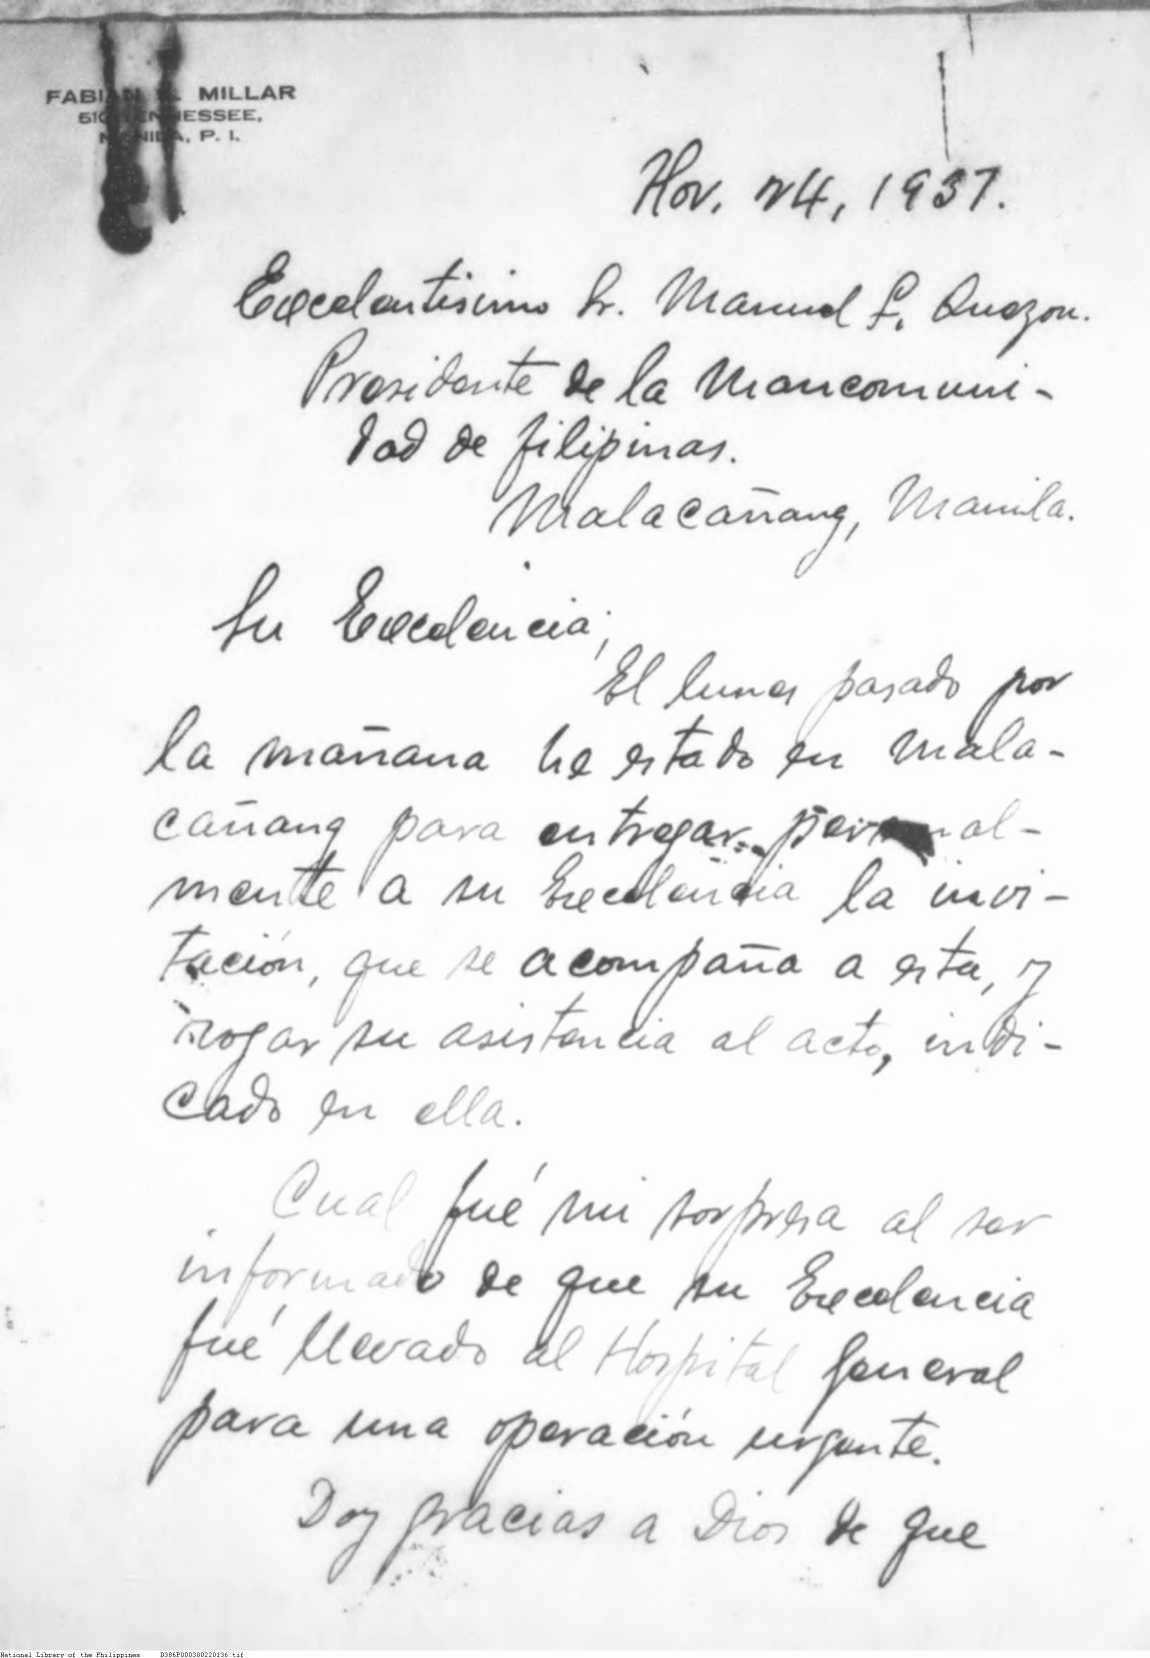 FABIAN MILLAR
510 TENNESSEE,
MANILA, P. I.
Nov. 24, 1937.
Excelentisimo Sr. Manuel L. Quezon.
Presidente de la Mancomuni-
dad de filipinas.
Malacañang, Manila.
Su Excelencia;
El lunes pasado por
la mañana he estado en Mala-
cañang para entregar personal-
mente a su Excelencia la invi-
tación, que se acompaña a esta, y
rogar su asistencia al acto, indi-
cado en ella.
Cual fué mi sorpresa al ser
informado de que su Excelencia
fué llevado al Hospital General
para una operación urgente.
Doy gracias a Dios de que
National Library of the Philippines D386P000380220136.tif